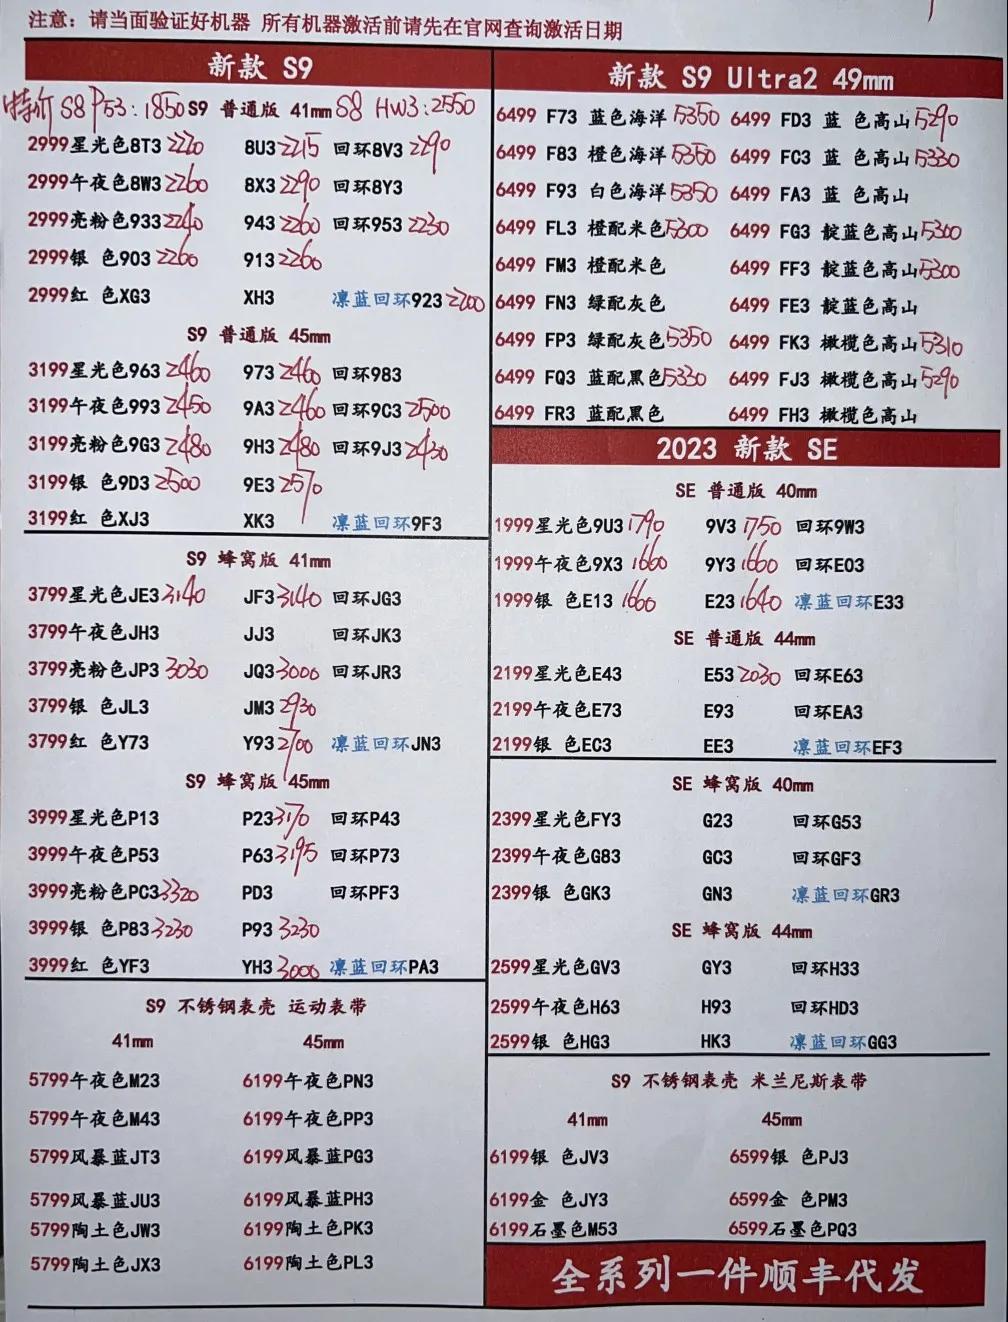 注意：请当面验证好机器 所有机器激活前请先在官网查询激活日期
新款 S9
特价 S8 P53:1850 S9 普通版 41mm S8 HW3:2550
2999星光色8T3 2220 8U3 2215 回环8V3 2290
2999午夜色8W3 2260 8X3 2290 回环8Y3
2999亮粉色933 2240 943 2260 回环953 2230
2999银 色903 2260 913 2260
2999红 色XG3 XH3 凛蓝回环923 2200
S9 普通版 45mm
3199星光色963 2460 973 2460 回环983
3199午夜色993 2450 9A3 2460 回环9C3 2500
3199亮粉色9G3 2480 9H3 2480 回环9J3 2430
3199银 色9D3 2500 9E3 2570
3199红 色XJ3 XK3 凛蓝回环9F3
S9 蜂窝版 41mm
3799星光色JE3 3140 JF3 3140 回环JG3
3799午夜色JH3 JJ3 回环JK3
3799亮粉色JP3 3030 JQ3 3000 回环JR3
3799银 色JL3 JM3 2930
3799红 色Y73 Y93 2700 凛蓝回环JN3
S9 蜂窝版 45mm
3999星光色P13 P23 3170 回环P43
3999午夜色P53 P63 3195 回环P73
3999亮粉色PC3 3320 PD3 回环PF3
3999银 色P83 3230 P93 3230
3999红 色YF3 YH3 3000 凛蓝回环PA3
S9 不锈钢表壳 运动表带
41mm 45mm
5799午夜色M23 6199午夜色PN3
5799午夜色M43 6199午夜色PP3
5799风暴蓝JT3 6199风暴蓝PG3
5799风暴蓝JU3 6199风暴蓝PH3
5799陶土色JW3 6199陶土色PK3
5799陶土色JX3 6199陶土色PL3
新款 S9 Ultra2 49mm
6499 F73 蓝色海洋 5350 6499 FD3 蓝 色高山 5290
6499 F83 橙色海洋 5350 6499 FC3 蓝 色高山 5330
6499 F93 白色海洋 5350 6499 FA3 蓝 色高山
6499 FL3 橙配米色 5300 6499 FG3 靛蓝色高山 5300
6499 FM3 橙配米色 6499 FF3 靛蓝色高山 5300
6499 FN3 绿配灰色 6499 FE3 靛蓝色高山
6499 FP3 绿配灰色 5350 6499 FK3 橄榄色高山 5310
6499 FQ3 蓝配黑色 5330 6499 FJ3 橄榄色高山 5290
6499 FR3 蓝配黑色 6499 FH3 橄榄色高山
2023 新款 SE
SE 普通版 40mm
1999星光色9U3 1790 9V3 1750 回环9W3
1999午夜色9X3 1660 9Y3 1660 回环E03
1999银 色E13 1660 E23 1640 凛蓝回环E33
SE 普通版 44mm
2199星光色E43 E53 2030 回环E63
2199午夜色E73 E93 回环EA3
2199银 色EC3 EE3 凛蓝回环EF3
SE 蜂窝版 40mm
2399星光色FY3 G23 回环G53
2399午夜色G83 GC3 回环GF3
2399银 色GK3 GN3 凛蓝回环GR3
SE 蜂窝版 44mm
2599星光色GV3 GY3 回环H33
2599午夜色H63 H93 回环HD3
2599银 色HG3 HK3 凛蓝回环GG3
S9 不锈钢表壳 米兰尼斯表带
41mm 45mm
6199银 色JV3 6599银 色PJ3
6199金 色JY3 6599金 色PM3
6199石墨色M53 6599石墨色PQ3
全系列一件顺丰代发